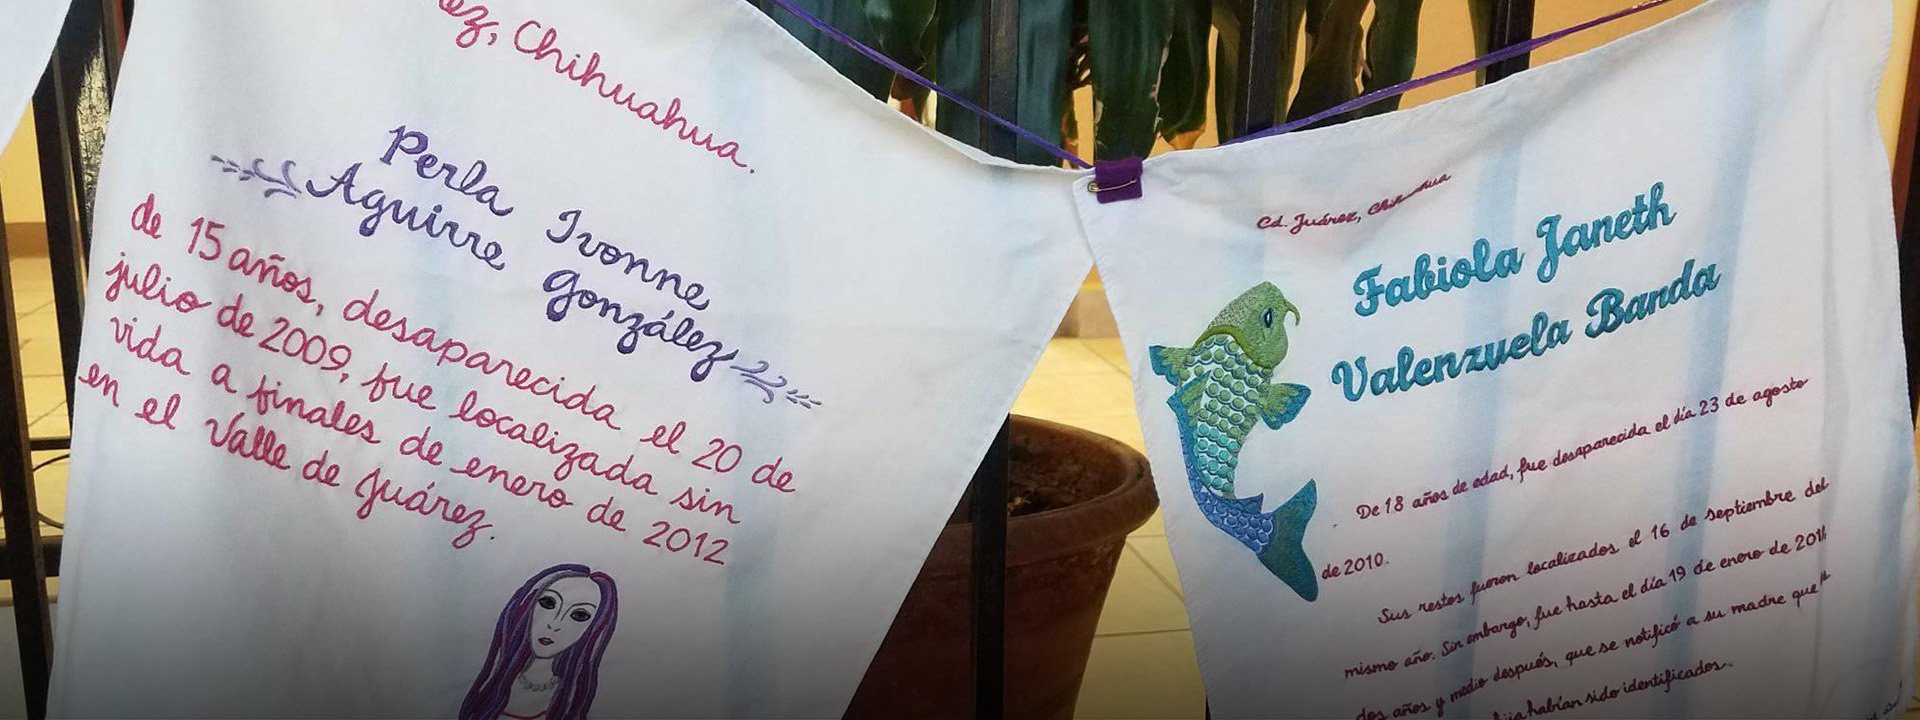 ez, Chihuahua.
Perla Ivonne
Aguirre González
de 15 años, desaparecida el 20 de
julio de 2009, fue localizada sin
vida a finales de enero de 2012
en el Valle de Juárez.
Cd. Juárez, Chihuahua
Fabiola Janeth
Valenzuela Banda
De 18 años de edad, fue desaparecida el día 23 de agosto
de 2010.
Sus restos fueron localizados el 16 de septiembre del
mismo año. Sin embargo, fue hasta el día 19 de enero de
dos años y medio después, que se notificó a su madre que
habían sido identificados.